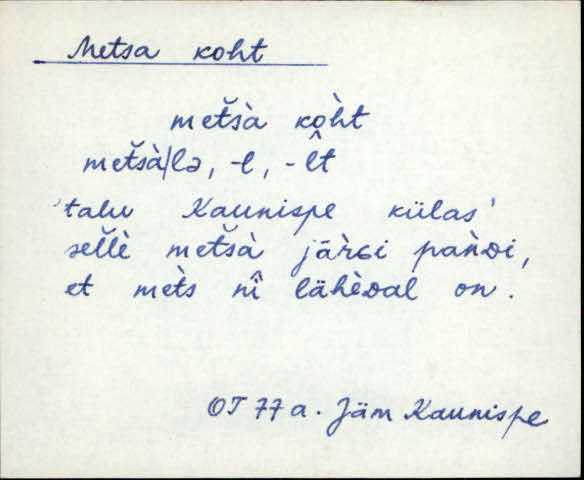 Metsa koht
met̆sà kò̭ht
met̆sà/lə, -l, -l̂t
'talu Kaunispe külas'
sel̆lè met̆sà jär̀ɢi pan̆ᴅi,
et mèts nî lähèᴅal on.
OT 77 a. Jäm Kaunispe